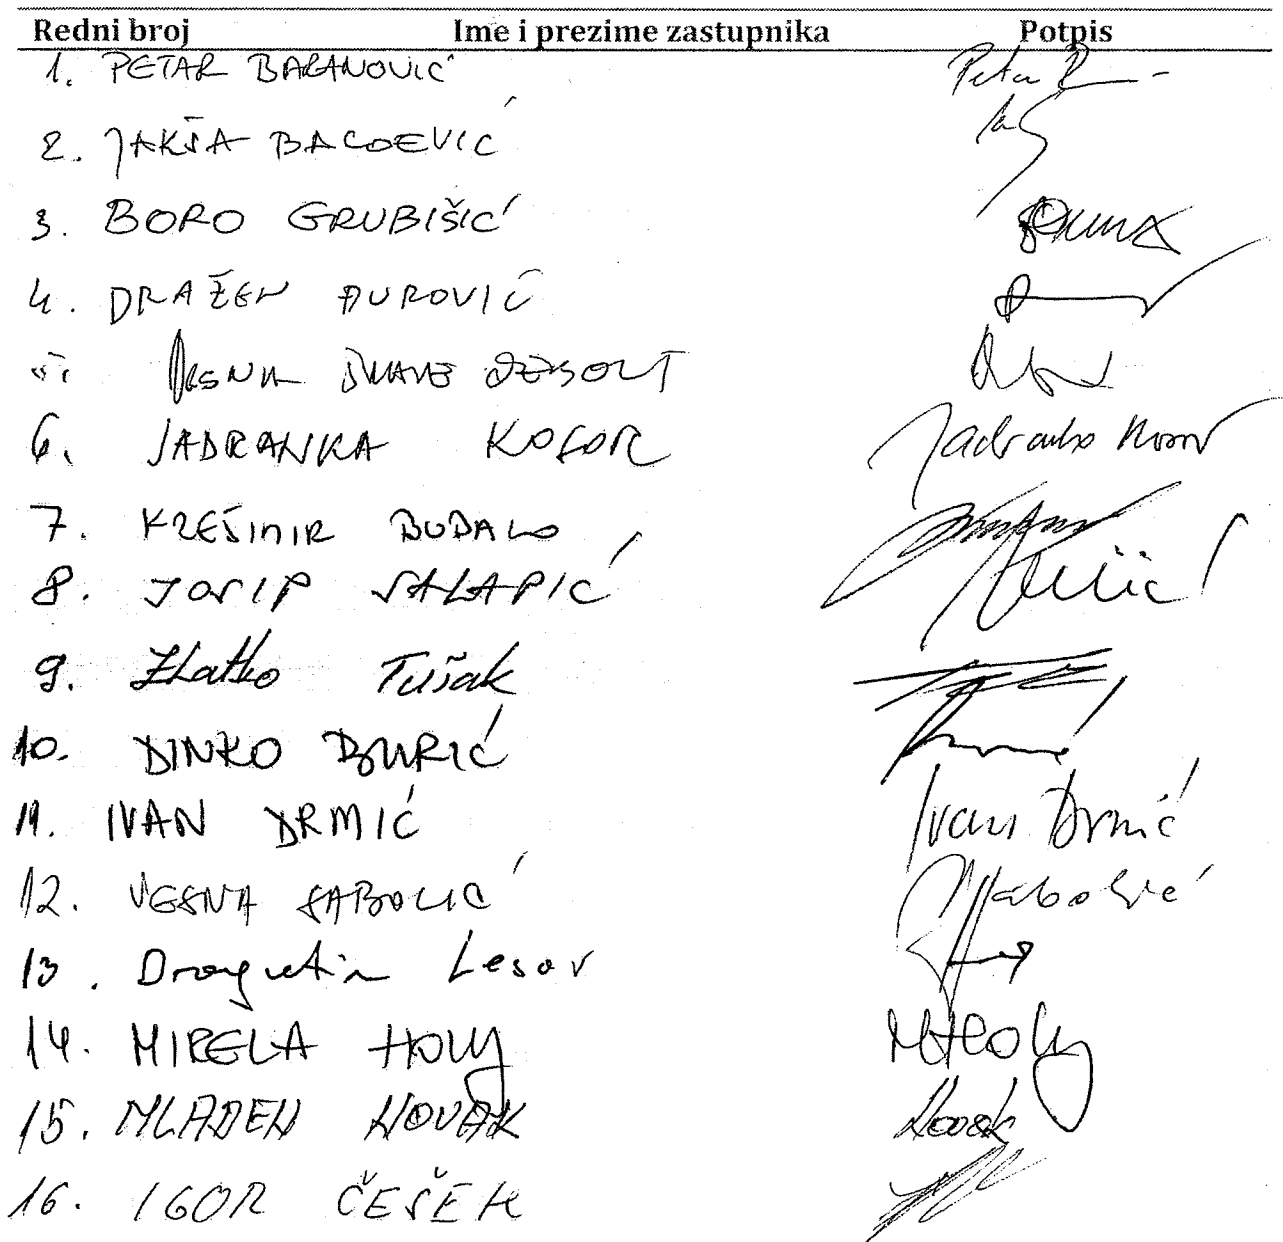 Redni broj Ime i prezime zastupnika Potpis
1. PETAR BARANOVIĆ Petar
2. JAKŠA BALOEVIĆ
3. BORO GRUBIŠIĆ
4. DRAŽEN ĐUROVIĆ
5. VESNA ŠKARE OŽBOLT
6. JADRANKA KOSOR Jadranka Kosor
7. KREŠIMIR BUBALO
8. JOSIP SALAPIĆ
9. Zlatko Tušak
10. DINKO BURIĆ
11. IVAN DRMIĆ Ivan Drmić
12. VESNA SABOLIĆ Sabolić
13. Dragutin Lesar
14. MIRELA HOLY MHoly
15. MLADEN NOVAK Novak
16. IGOR ČEŠEK